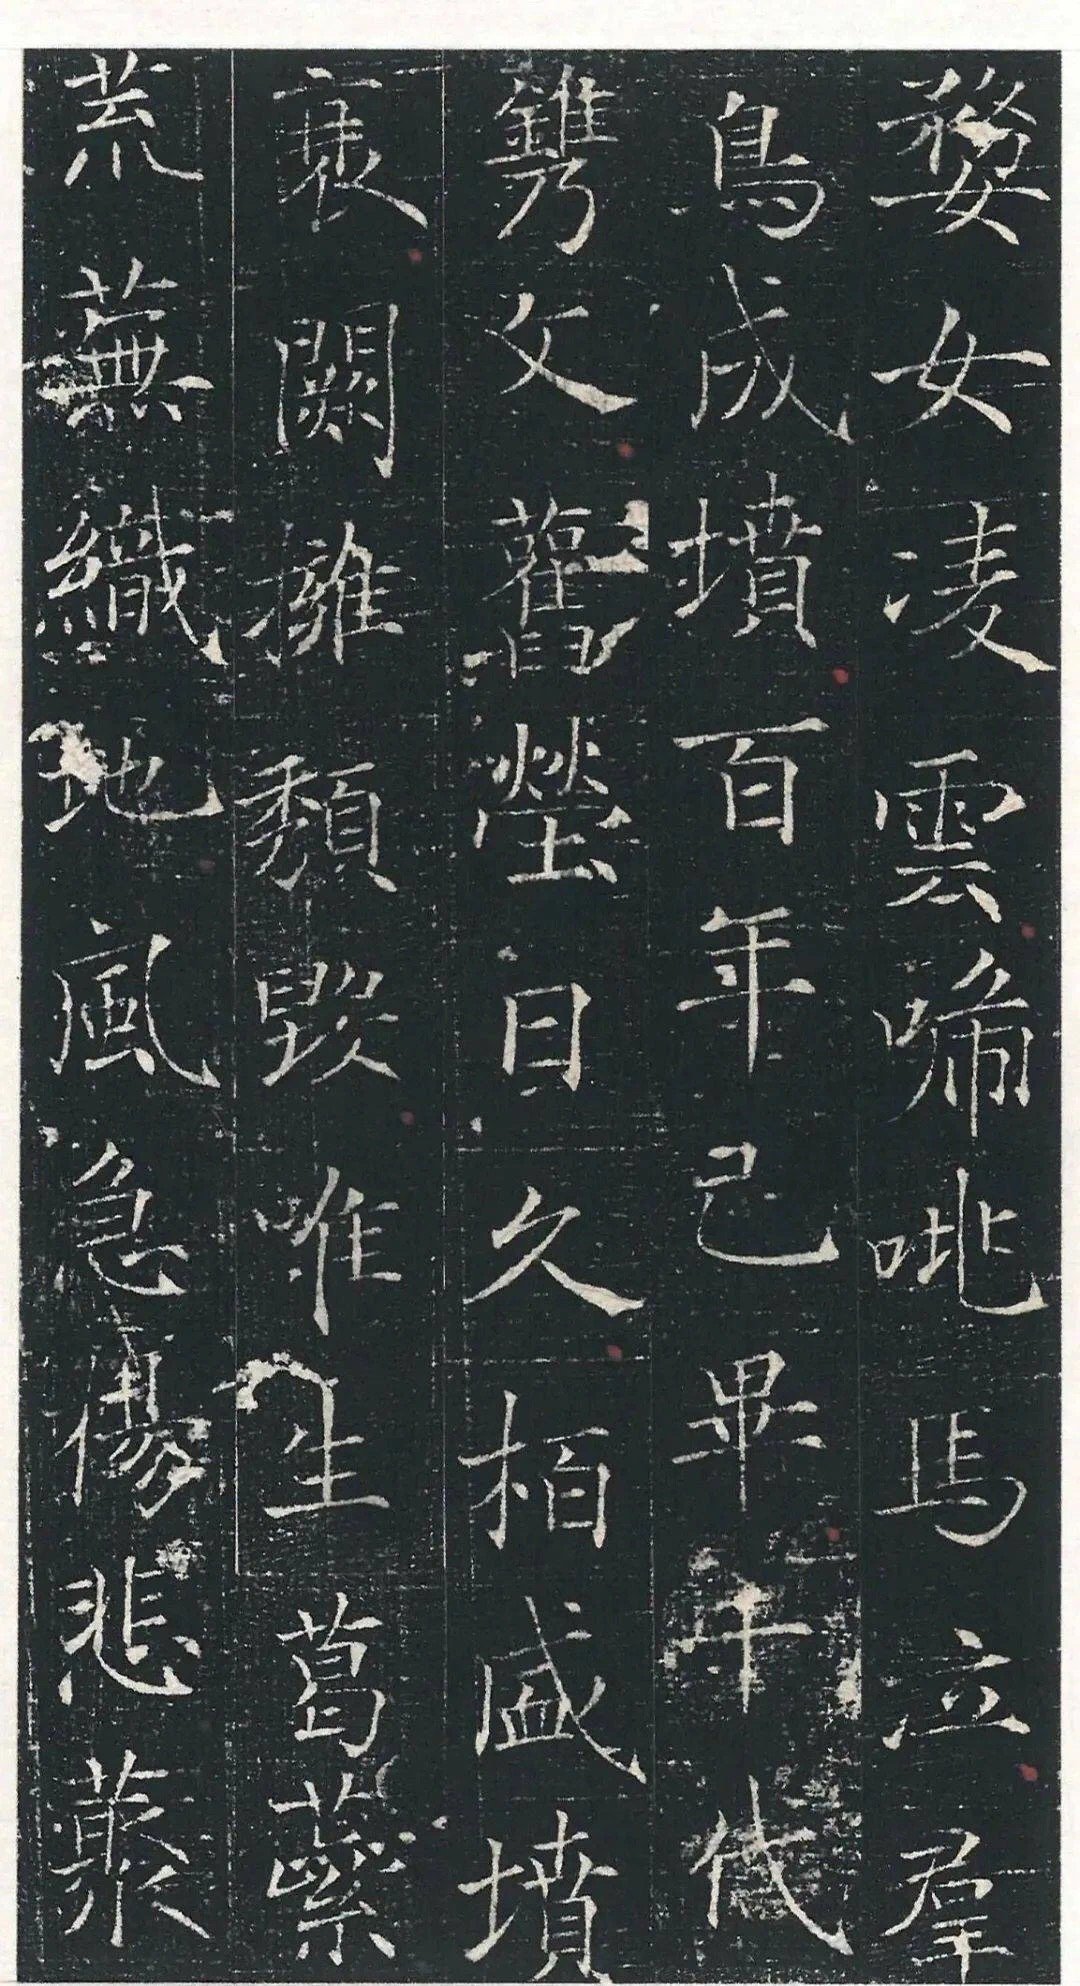 婺女凌雲啼咷馬泣群
鳥成墳百年已畢千代
鐫文舊塋日久栢盛墳
衰闕擁頹毀唯生葛
荒蕪織地風急傷悲藂